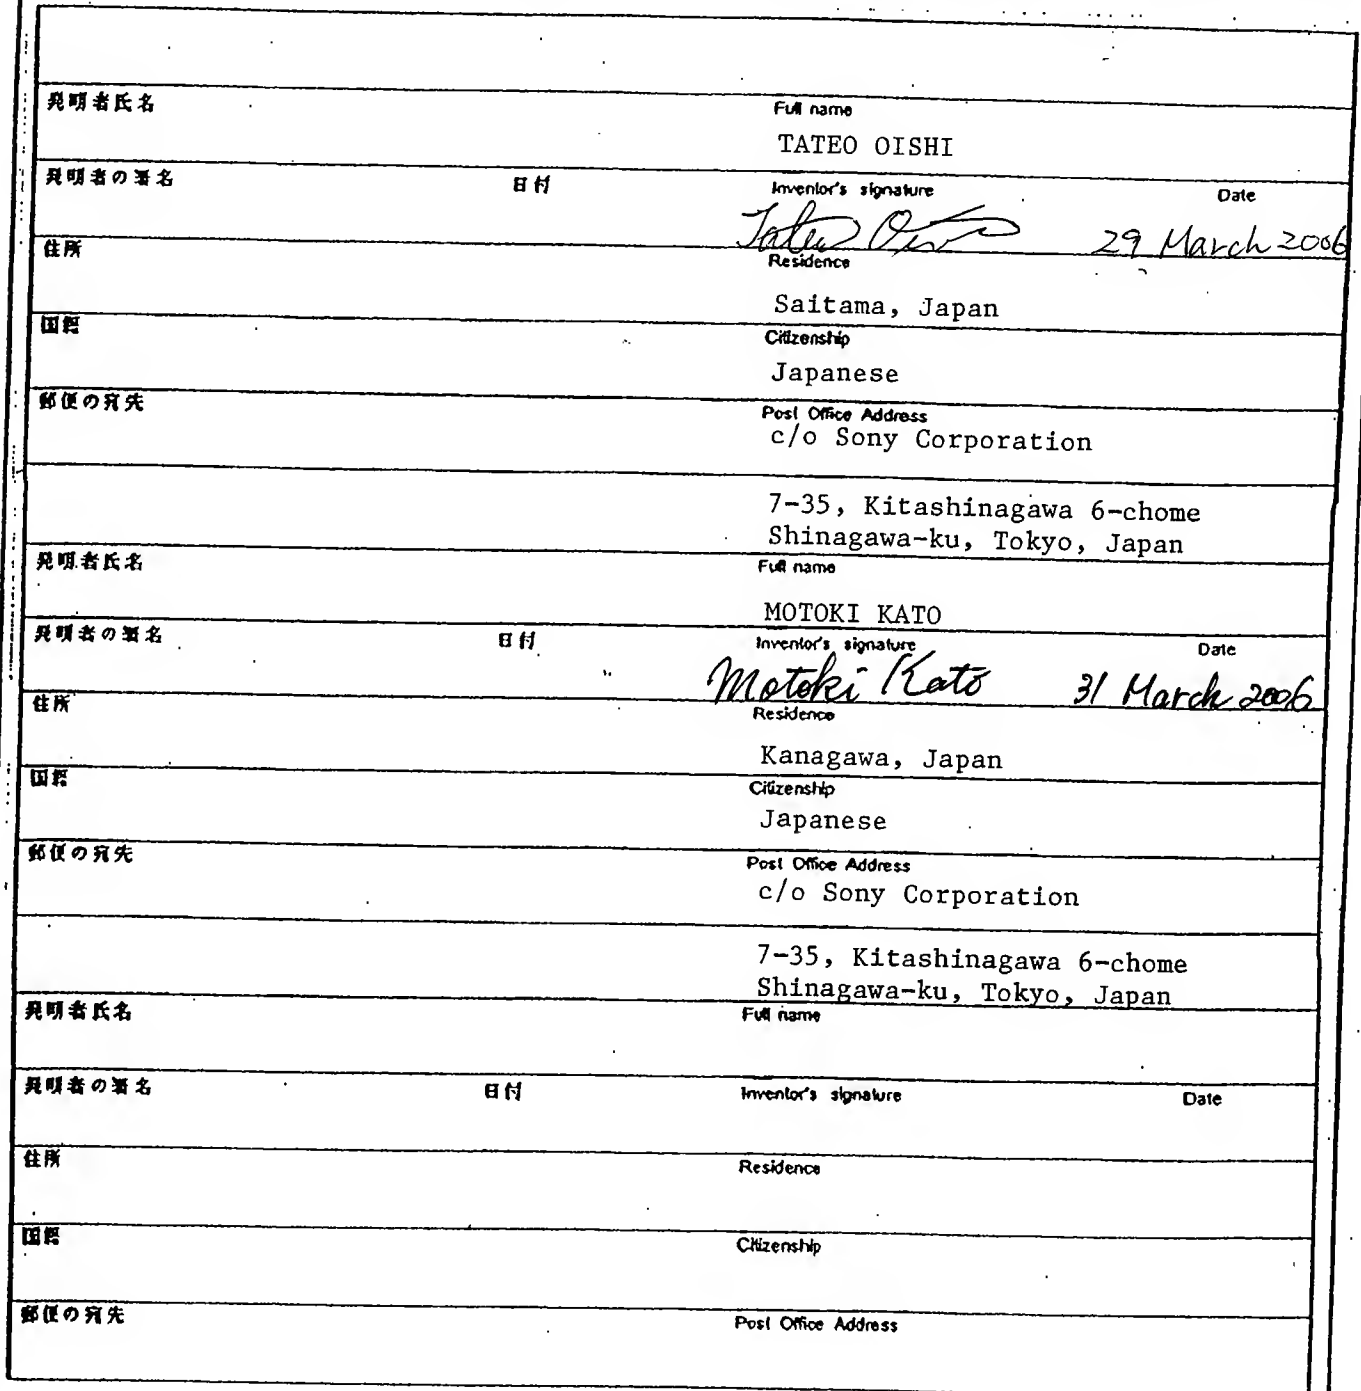 発明者氏名 Full name
TATEO OISHI
発明者の署名 日付 Inventor's signature Date
Tateo Oishi 29 March 2006
住所 Residence
Saitama, Japan
国籍 Citizenship
Japanese
郵便の宛先 Post Office Address
c/o Sony Corporation
7-35, Kitashinagawa 6-chome
Shinagawa-ku, Tokyo, Japan
発明者氏名 Full name
MOTOKI KATO
発明者の署名 日付 Inventor's signature Date
Motoki Kato 31 March 2006
住所 Residence
Kanagawa, Japan
国籍 Citizenship
Japanese
郵便の宛先 Post Office Address
c/o Sony Corporation
7-35, Kitashinagawa 6-chome
Shinagawa-ku, Tokyo, Japan
発明者氏名 Full name
発明者の署名 日付 Inventor's signature Date
住所 Residence
国籍 Citizenship
郵便の宛先 Post Office Address